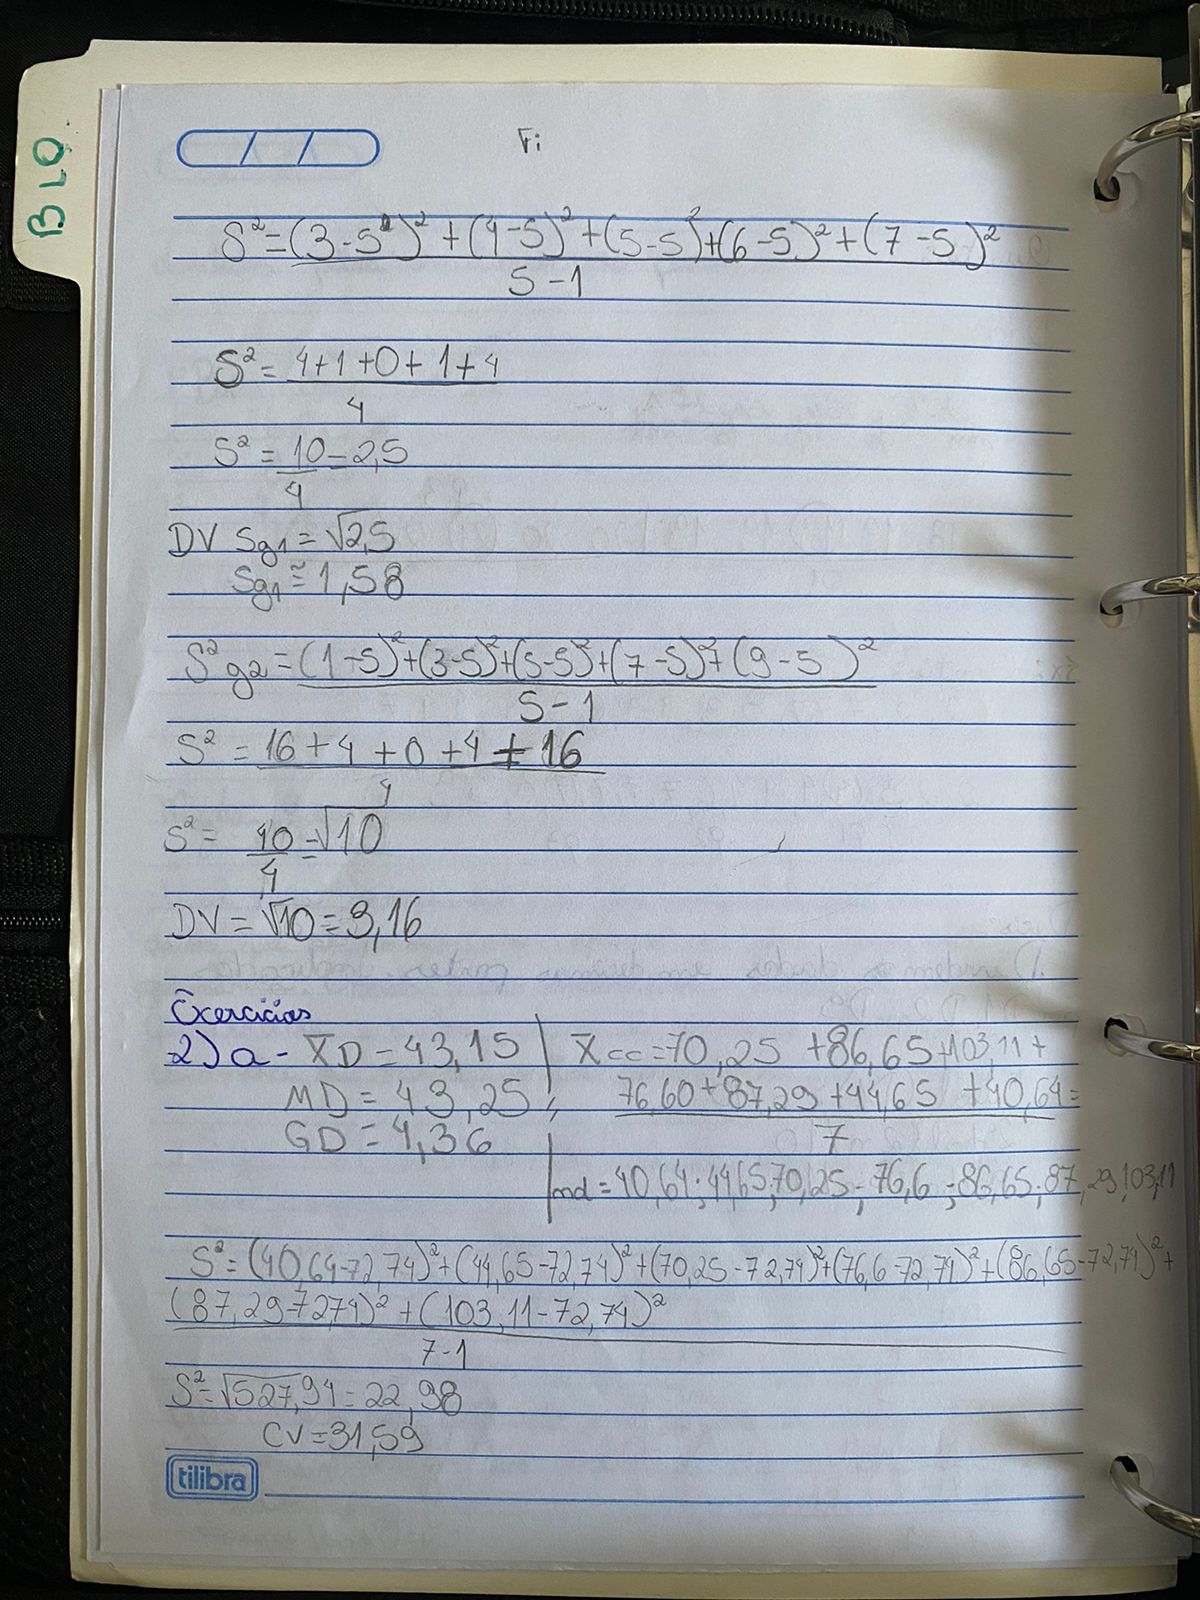 BLO.
Fi
S² = (3-5)² + (4-5)² + (5-5)² + (6-5)² + (7-5)²
5-1
S² = 4+1+0+1+4
4
S² = 10 = 2,5
4
DV Sg1 = √2,5
Sg1 ≅ 1,58
S²g2 = (1-5)² + (3-5)² + (5-5)² + (7-5)² + (9-5)²
5-1
S² = 16+4+0+4+16
4
S² = 40 = √10
4
DV = √10 = 3,16
Exercícios
2) a - X̄D = 43,15
MD = 43,25
GD = 4,36
X̄cc = 70,25 + 86,65 + 103,11 +
76,60 + 87,29 + 44,65 + 40,64 =
7
md = 40,64; 44,65; 70,25; 76,6; 86,65; 87,29; 103,11
S² = (40,64-72,74)² + (44,65-72,74)² + (70,25-72,74)² + (76,6-72,74)² + (86,65-72,74)² +
(87,29-72,74)² + (103,11-72,74)²
7-1
S² = √527,94 = 22,98
CV = 31,59
tilibra